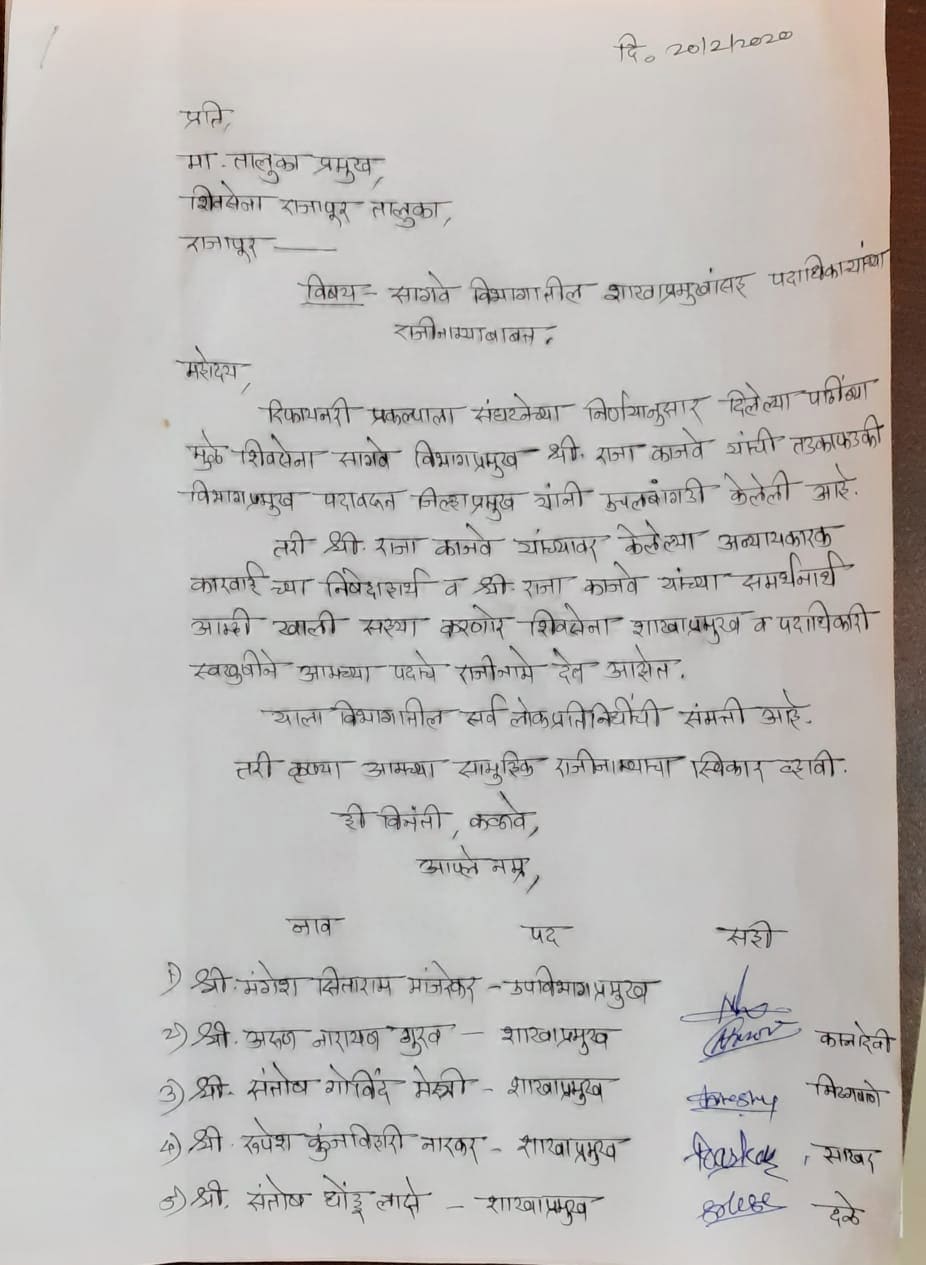 दि. 20/2/2020
प्रति,
मा. तालुका प्रमुख,
शिवसेना राजापूर तालुका,
राजापूर —
विषय - सागवे विभागातील शाखाप्रमुखांसह पदाधिकाऱ्यांच्या
राजीनाम्याबाबत.
महोदय,
रिफायनरी प्रकल्पाला संघटनेच्या निर्णयानुसार दिलेल्या पाठिंब्या
मुळे शिवसेना सागवे विभागप्रमुख श्री. राजा काजवे यांची तडकाफडकी
विभागप्रमुख पदावरून जिल्हाप्रमुख यांनी उचलबांगडी केलेली आहे.
तरी श्री. राजा काजवे यांच्यावर केलेल्या अन्यायकारक
कारवाई च्या निषेदासर्थ व श्री. राजा काजवे यांच्या समर्थनार्थ
आम्ही खाली सह्या करणारे शिवसेना शाखाप्रमुख व पदाधिकारी
स्वखुषीने आमच्या पदाचे राजीनामे देत आहोत.
याला विभागातील सर्व लोकप्रतिनिधींची संमती आहे.
तरी कृपया आमच्या सामुहिक राजीनाम्याचा स्विकार व्हावा.
ही विनंती, कळावे,
आपले नम्र,
नाव पद सही
1) श्री. मंगेश सिताराम मांजरेकर - उपविभागप्रमुख
2) श्री. अरुण नारायण गुरव - शाखाप्रमुख कानादेवी
3) श्री. संतोष गोविंद मेस्त्री - शाखाप्रमुख मिठगवाणे
4) श्री. रुपेश कुंजविहारी नारकर - शाखाप्रमुख , साखर
5) श्री. संतोष धोंडू लासे - शाखाप्रमुख दळे